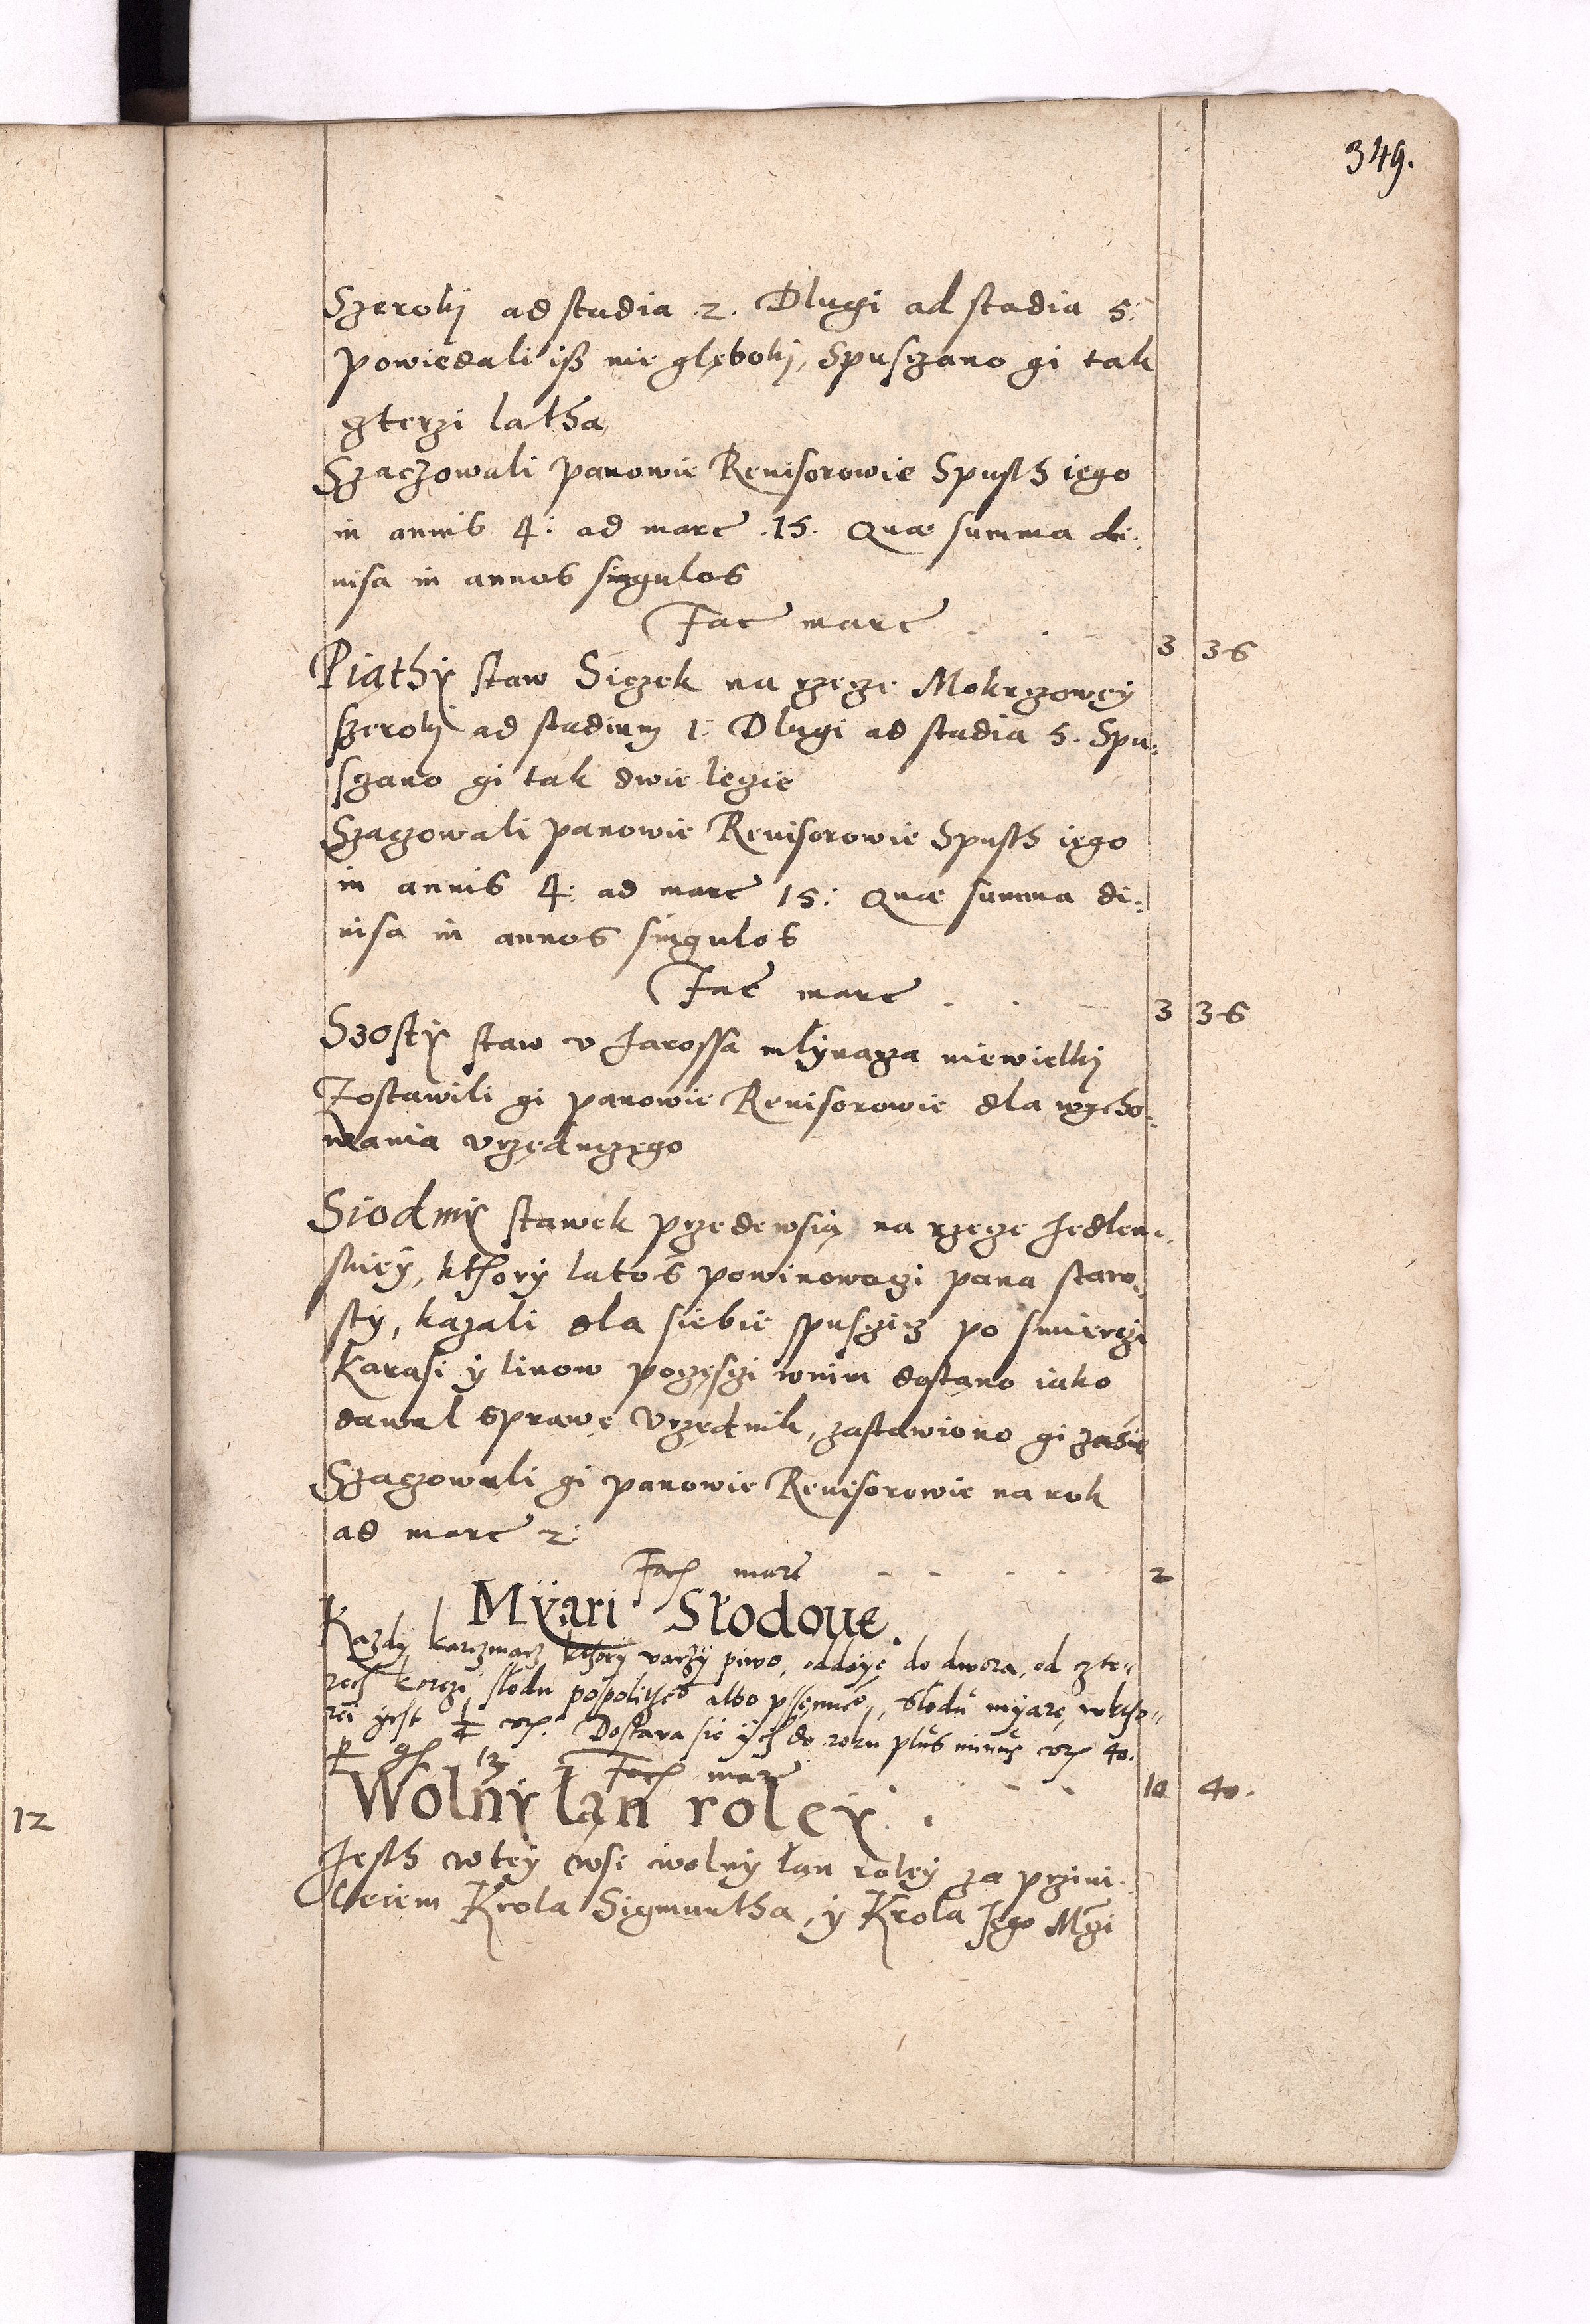 349.
Szeroky ad stadia 2. Dlugi ad stadia 5.
powiedali isz nie głęboky, Spusczano gi tak
czterzi latha
Szaczowali panowie Reuisorowie Spusth iego
in annis 4: ad marc 15. Quae summa di-
uisa in annos singulos
Fac marc 3 36
Piathy staw Siczek na rzecze Mokrzowey
szeroky ad stadium 1: Dlugi ad stadia 5. Spu-
sczano gi tak dwie lecie
Szaczowali panowie Reuisorowie Spusth iego
in annis 4: ad marc 15: Quae summa di-
uisa in annos singulos
Fac marc 3 36
Szosty staw v Jarossa młynarza niewielky
Zostawili gi panowie Reuisorowie dla wycho-
wania vrzędniczego
Siodmy stawek przedewsią na rzecze Jedlen-
skiey, kthory latoś powinowaczi pana staro-
sty, kazali dla siebie spusczicz po smierczi
Karasi y linow poczęsczi wnim dostano iako
dawal sprawę Vrzędnik, zastawiono gi zasię
Szaczowali gi panowie Reuisorowie na rok
ad marc 2:
Fac marc 2
Myari Słodoue.
Kazdy karczmarz kthory varzy piwo, oddaye do dwora, od czte-
rech korczi słodu
albo
Słodu myarę, wktho-
rei yest 1/4 cor. Dostava sie ych do roku plus minus cor 40.
Fac marc 10 40.
Wolny łan roley.
Jesth wtey wsi wolny łan roley za priui-
leiem Krola Sigmuntha, y Krola Jego Mczi
12